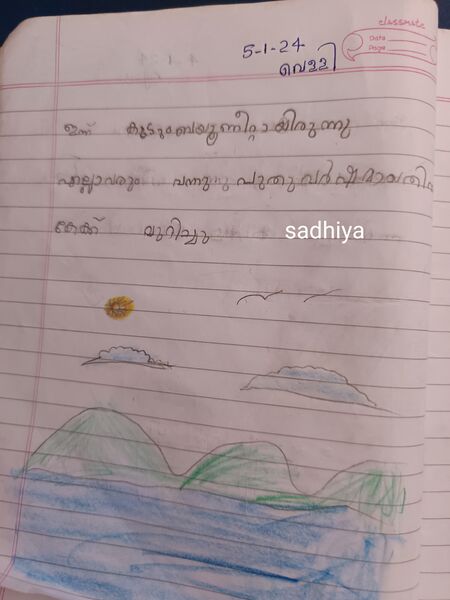 classmate
Date
Page
5-1-24
വെള്ളി
ഇന്ന് കുടുംബയൂണിറ്റായിരുന്നു
എല്ലാവരും വന്നു പുതുവർഷമായതിന
കേക്ക് മുറിച്ചു
sadhiya